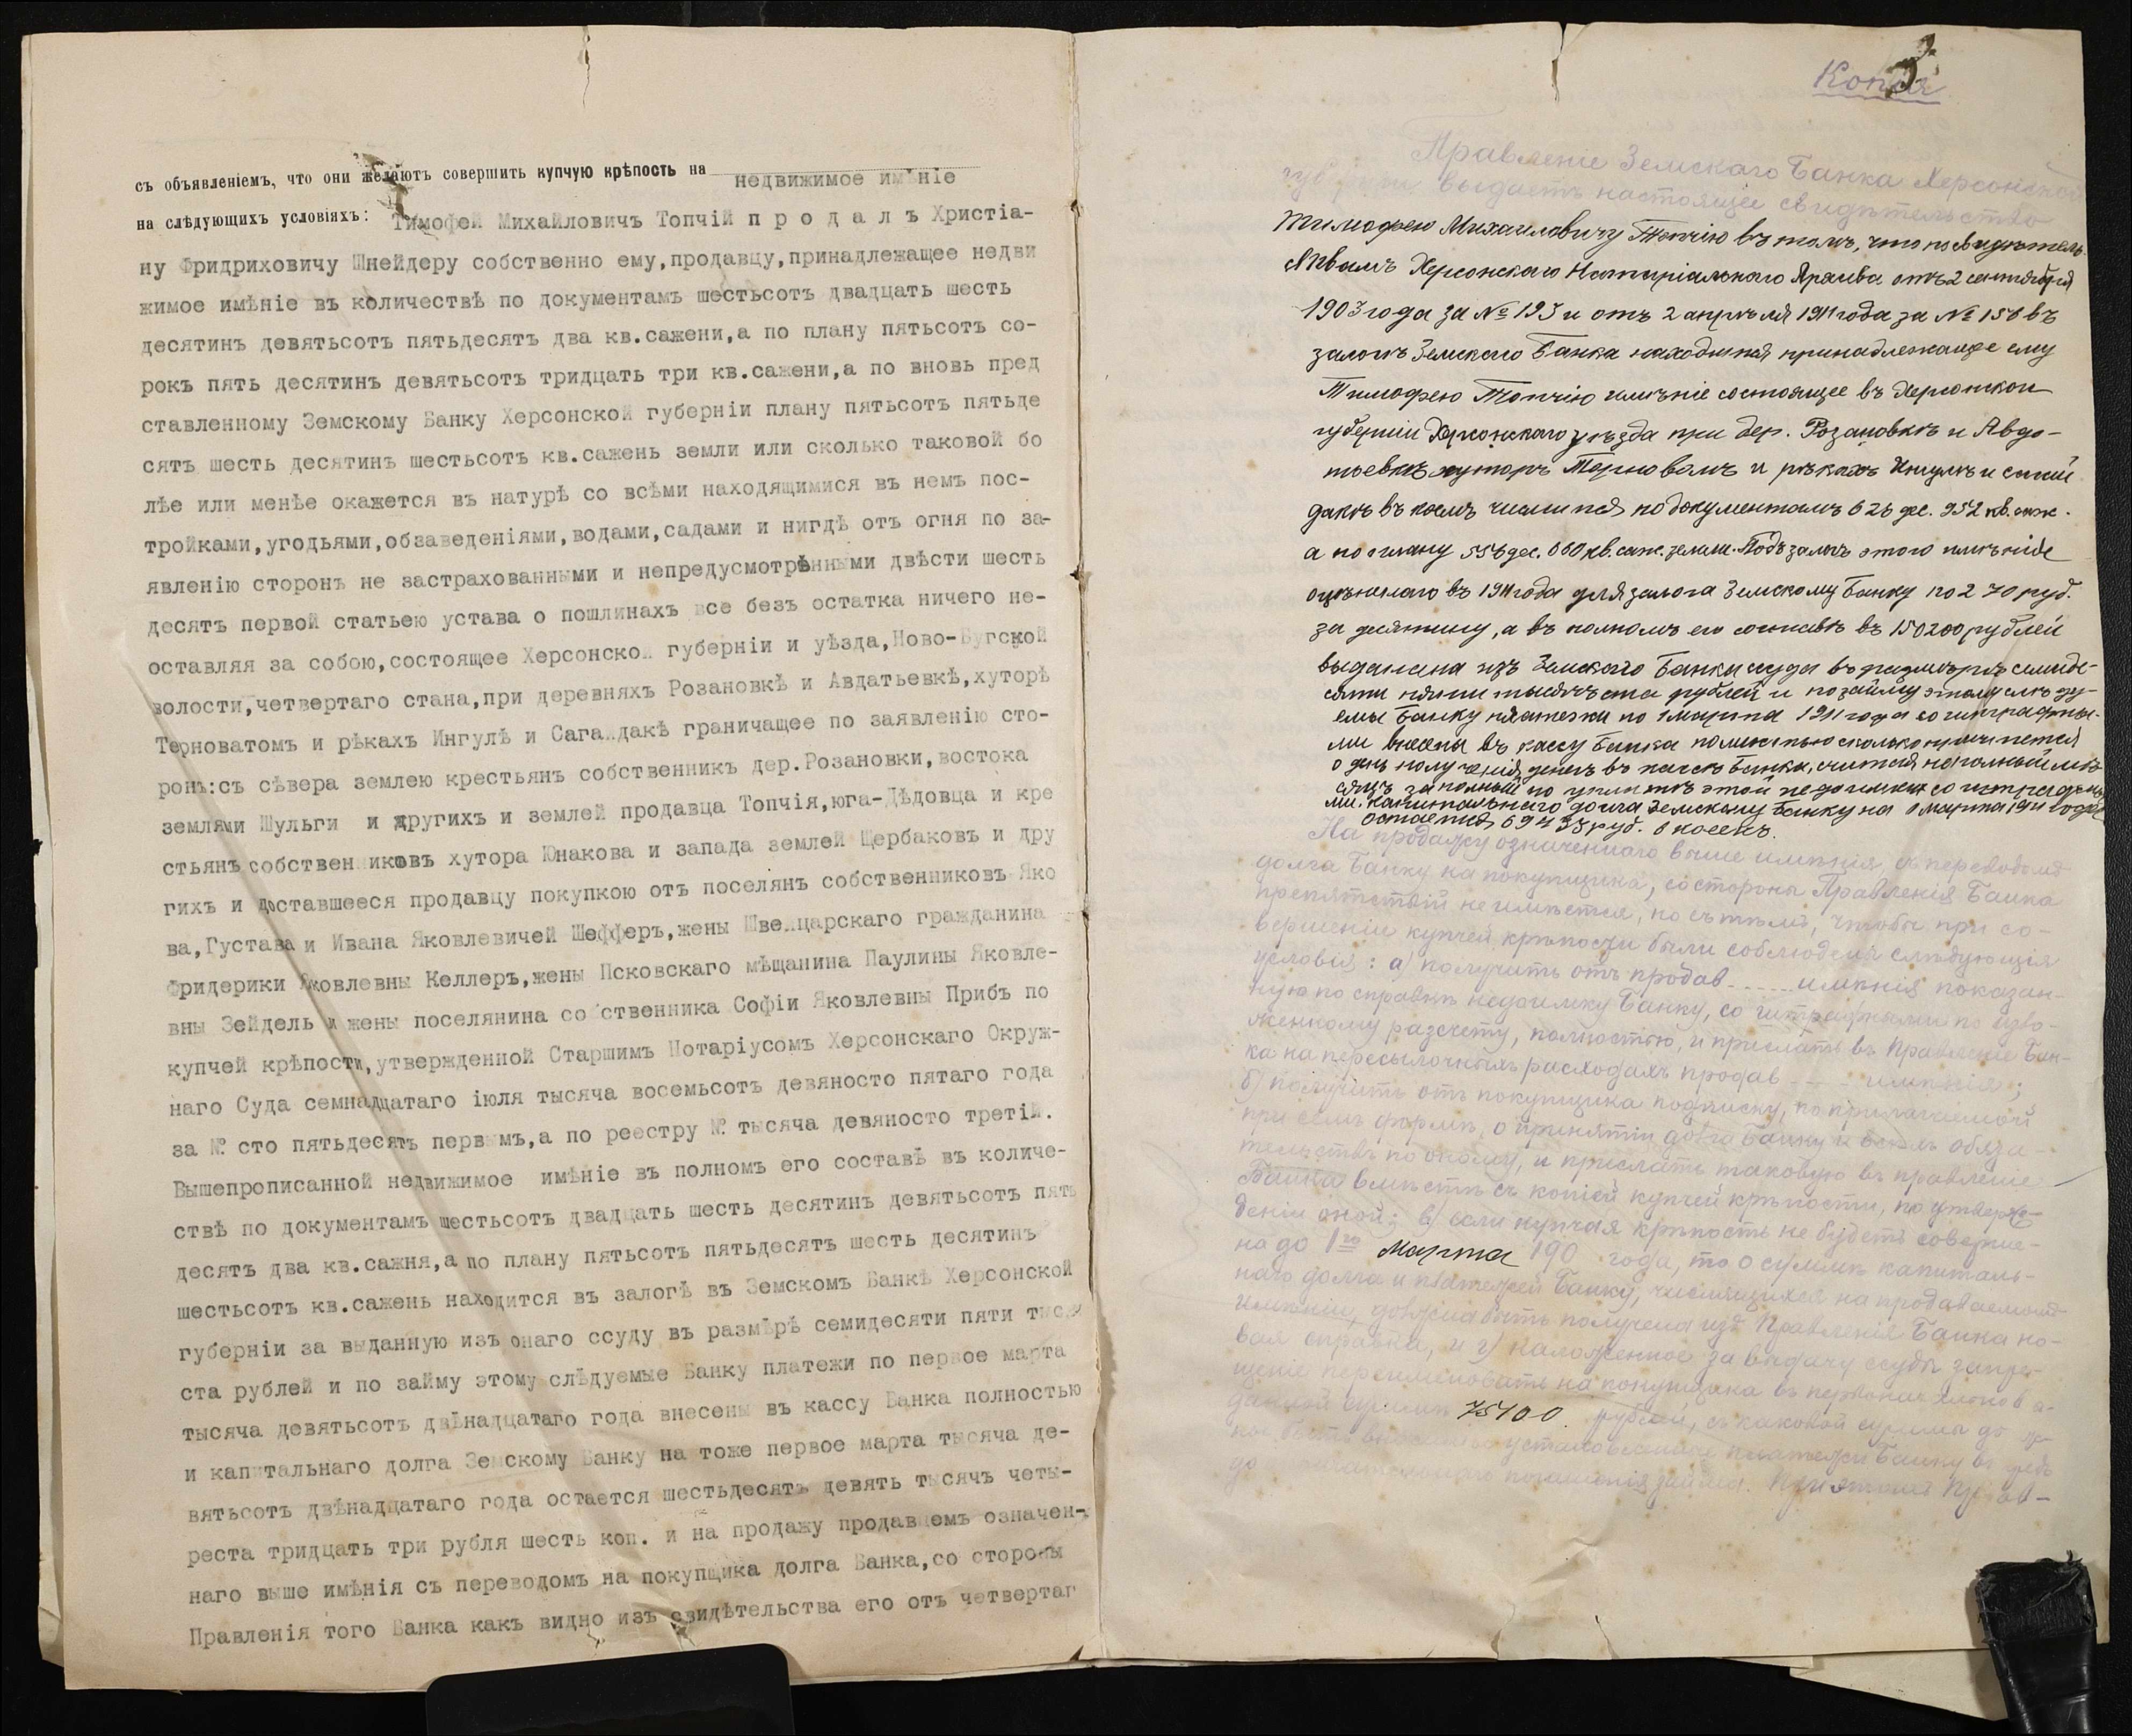 съ объявленіемъ, что они желаютъ совершить купчую крѣпость на недвижимое имѣніе
на слѣдующихъ условіяхъ: Тимофей Михайловичъ Топчій п р о д а л ъ Христіа-
ну Фридриховичу Шнейдеру собственно ему,продавцу,принадлежащее недви
жимое имѣніе въ количествѣ по документамъ шестьсотъ двадцать шесть
десятинъ девятьсотъ пятьдесятъ два кв.сажени,а по плану пятьсотъ со-
рокъ пять десятинъ девятьсотъ тридцать три кв.сажени,а по вновь пред
ставленному Земскому Банку Херсонской губерніи плану пятьсотъ пятьде
сятъ шесть десятинъ шестьсотъ кв.сажень земли или сколько таковой бо
лѣе или менѣе окажется въ натурѣ со всѣми находящимися въ немъ пос-
тройками,угодьями,обзаведеніями,водами,садами и нигдѣ отъ огня по за-
явленію сторонъ не застрахованными и непредусмотрѣнными двѣсти шесть
десятъ первой статьею устава о пошлинахъ все безъ остатка ничего не-
оставляя за собою,состоящее Херсонской губерніи и уѣзда,Ново-Бугской
волости,четвертаго стана,при деревняхъ Розановкѣ и Авдатьевкѣ,хуторѣ
Терноватомъ и рѣкахъ Ингулѣ и Сагайдакѣ граничащее по заявленію сто-
ронъ:съ сѣвера землею крестьянъ собственникъ дер.Розановки,востока
землями Шульги и другихъ и землей продавца Топчія,юга-Дѣдовца и кре
стьянъ собственниковъ хутора Юнакова и запада землей Щербаковъ и дру
гихъ и доставшееся продавцу покупкою отъ поселянъ собственниковъ Яко
ва,Густава и Ивана Яковлевичей Шефферъ,жены Швейцарскаго гражданина
Фридерики Яковлевны Келлеръ,жены Псковскаго мѣщанина Паулины Яковле-
вны Зейдель и жены поселянина собственника Софіи Яковлевны Прибъ по
купчей крѣпости,утвержденной Старшимъ Нотаріусомъ Херсонскаго Окруж-
наго Суда семнадцатаго іюля тысяча восемьсотъ девяносто пятаго года
за № сто пятьдесятъ первымъ,а по реестру № тысяча девяносто третій.
Вышепрописанной недвижимое имѣніе въ полномъ его составѣ въ количе-
ствѣ по документамъ шестьсотъ двадцать шесть десятинъ девятьсотъ пять
десятъ два кв.сажня,а по плану пятьсотъ пятьдесятъ шесть десятинъ
шестьсотъ кв.сажень находится въ залогѣ въ Земскомъ Банкѣ Херсонской
губерніи за выданную изъ онаго ссуду въ размѣрѣ семидесяти пяти тысяч
ста рублей и по займу этому слѣдуемые Банку платежи по первое марта
тысяча девятьсотъ двѣнадцатаго года внесены въ кассу Банка полностью
и капитальнаго долга Земскому Банку на тоже первое марта тысяча де-
вятьсотъ двѣнадцатаго года остается шестьдесятъ девять тысячъ четы-
реста тридцать три рубля шесть коп. и на продажу продавцемъ означен-
наго выше имѣнія съ переводомъ на покупщика долга Банка,со стороны
Правленія того Банка какъ видно изъ свидѣтельства его отъ четвертаг
3
Копія
Правленіе Земскаго Банка Херсонской
губерніи выдаетъ настоящее свидѣтельство
Тимофею Михайловичу Топчію въ томъ, что по свидѣтель-
ствамъ Херсонскаго Нотаріальнаго Архива отъ 2 сентября
1903 года за № 193 и отъ 2 апрѣля 1911 года за № 156 въ
залогѣ Земскаго Банка находится принадлежащее ему
Тимофею Топчію имѣніе состоящее въ Херсонской
губерніи Херсонскаго уѣзда при дер. Розановкѣ и Авдо-
тьевкѣ хуторѣ Терновомъ и рѣкахъ Ингулѣ и Сагай
дакѣ въ коемъ числится по документамъ 626 дес. 952 кв. саж.
а по плану 556 дес. 600 кв. саж. земли. Подъ залогъ этого имѣнія
оцѣненаго въ 1911 года для залога Земскому Банку по 270 руб.
за десятину, а въ полномъ его составѣ въ 150200 рублей
выдана изъ Земскаго Банка ссуда въ размѣрѣ семиде-
сяти пяти тысячъ ста рублей и по займу этому слѣду-
емые Банку платежи по 1 марта 1911 года со штрафны-
ми внесены въ кассу Банка полностью сколько причитается
о день полученія денегъ въ кассѣ Банка, считая неполный мѣ-
сяцъ за полный по уплатѣ этой недоимки со штрафны
ми. капитальнаго долга Земскому Банку на 1 марта 1911 года
остается 69433 руб. 6 копѣекъ.
На продажу означеннаго выше имѣнія съ переводомъ
долга Банку на покупщика, со стороны Правленія Банка
препятствій не имѣется, но съ тѣмъ, чтобы при со-
вершеніи купчей крѣпости были соблюдены слѣдующія
условія: а) получить отъ продав имѣнія показан-
ную по справкѣ недоимку Банку, со штрафными по изло-
женному разсчету, полностью, и прислать въ Правленіе Бан-
ка на пересылочныхъ расходахъ продав имѣнія;
б) получить отъ покупщика подписку, по прилагаемой
при семъ формѣ, о принятіи долга Банку и всѣхъ обяза-
тельствъ по оному, и прислать таковую въ правленіе
Банка вмѣстѣ съ копіей купчей крѣпости, по утверж-
деніи оной; в) если купчая крѣпость не будетъ соверше-
на до 1го марта 190 года, то о суммѣ капиталь-
наго долга и платежей Банку, числящихся на продаваемомъ
имѣніи, должна быть получена изъ Правленія Банка но-
вая справка, и г) наложенное за выдачу ссуды запре-
щеніе переименовать на покупщика въ первоначально в
данной суммѣ 75100 рублей, съ каковой суммы до
быть установленные платежи Банку въ
до погашенія займа. При этомъ Прав-